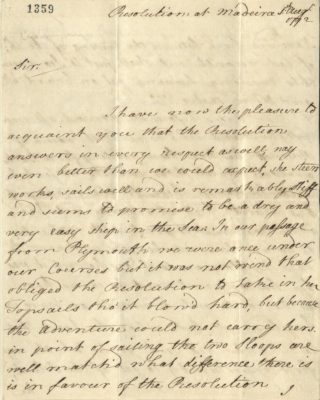 1359
Resolution at Madeira 1st Augt.
1772
Sir.
I have now the pleasure to
acquaint you that the Resolution
answers in every respect as well, nay
even better than we could expect, she steers
works, sails well and is remarkably stiff
and seems to promise to be a dry and
very easy ship in the Sea. In our passage
from Plymouth we were once under
our Courses but it was not wind that
obliged the Resolution to take in her
Topsails tho' it blow'd hard, but because
the Adventure could not carry hers.
in point of sailing the two Sloops are
well match'd what difference there is
is in favour of the Resolution